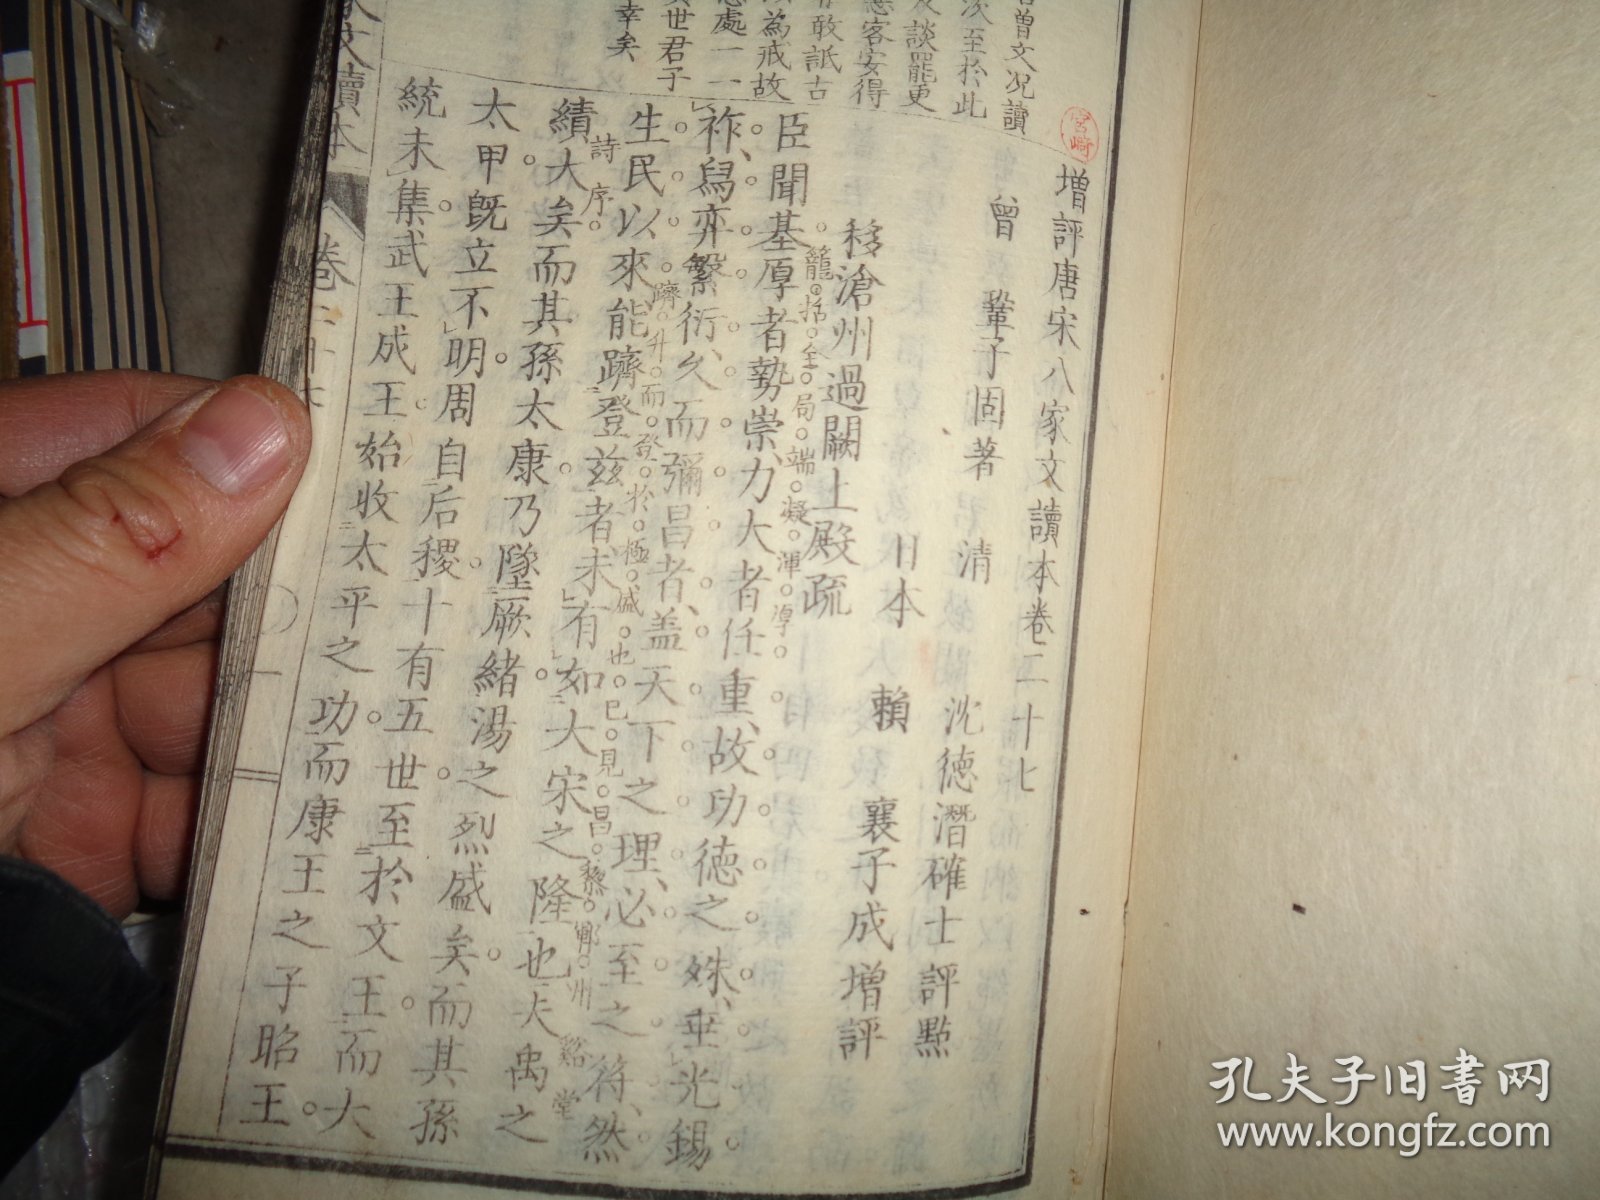 增評唐宋八家文讀本卷二十七
曾 鞏子固著
清 沈德潛確士評點
日本 賴 襄子成增評
移滄州過闕上殿疏
臣聞基厚者勢崇力大者任重故功德之殊垂光錫
祚舄奕繁衍久而彌昌者蓋天下之理必至之符然
生民以來能躋登茲者未有如大宋之隆也夫禹之
績大矣而其孫太康乃墜厥緒湯之烈盛矣而其孫
太甲既立不明周自后稷十有五世至於文王而大
統未集武王成王始收太平之功而康王之子昭王
籠括全局端凝渾厚
躋升而登於極盛也已見昌黎鄆州谿堂
詩序
曾文況讀
次至於此
談罷更
客安得
敢詆古
為戒故
處一一
世君子
幸矣
文讀本
卷二十七
一
宮崎
孔夫子旧書网
www.kongfz.com